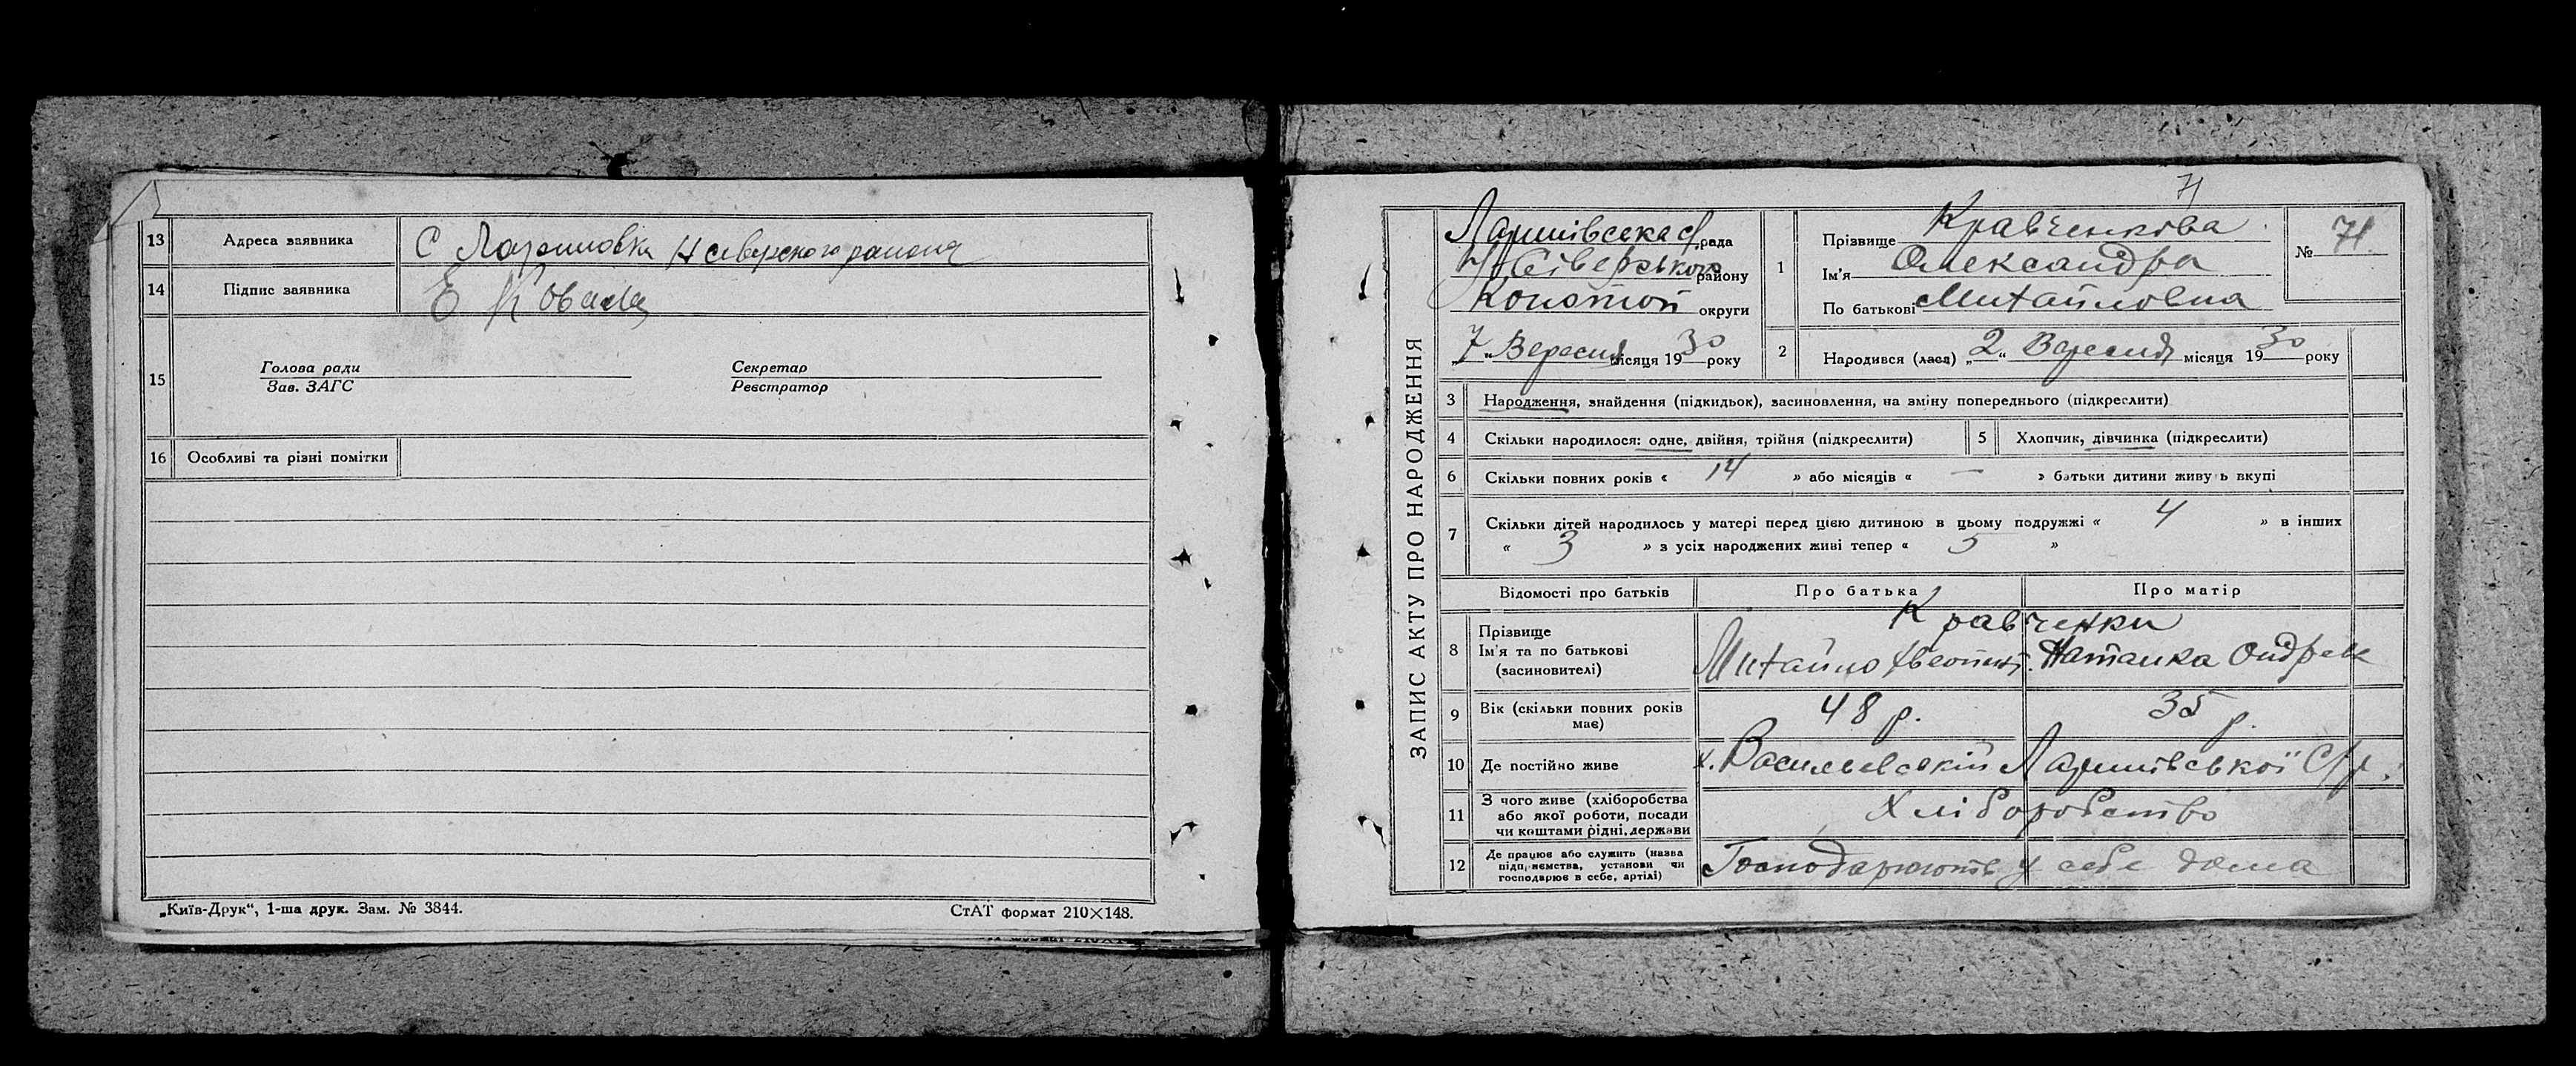 13 Адреса заявника С Лариновка Н северского района
14 Підпис заявника Е Коваль
15
Голова ради
Зав. ЗАГС
Секретар
Реєстратор
16 Особливі та різні помітки
„Київ-Друк“, 1-ша друк. Зам. № 3844.
СтАТ формат 210×148.
71
ЗАПИС АКТУ ПРО НАРОДЖЕННЯ
рада
Н/Сіверського району
Конотоп округи
„7“ Вересня місяця 1930 року
1
Прізвище Кравченкова
Ім'я Олександра
По батькові Михайловна
№ 71
2 Народився (лася) „2“ Вересня місяця 1930 року
3 Народження, знайдення (підкидьок), засиновлення, на зміну попереднього (підкреслити)
4 Скільки народилося: одне, двійня, трійня (підкреслити)
5 Хлопчик, дівчинка (підкреслити)
6 Скільки повних років « 14 » або місяців « — » батьки дитини живуть вкупі
7 Скільки дітей народилось у матері перед цією дитиною в цьому подружжі « 4 » в інших
« 3 » з усіх народжених живі тепер « 5 »
Відомості про батьків Про батька Про матір
8 Прізвище
Ім'я та по батькові
(засиновителі)
Кравченки
Михайло Наталка Ондрев
9 Вік (скільки повних років має) 48 р. 35 р.
10 Де постійно живе х. Васильевский С/р.
11 З чого живе (хліборобства
або якої роботи, посади
чи коштами рідні, держави
Хліборобство
12 Де працює або служить (назва
підприємства, установи чи
господарює в себе, артілі)
Господарюють у себе дома